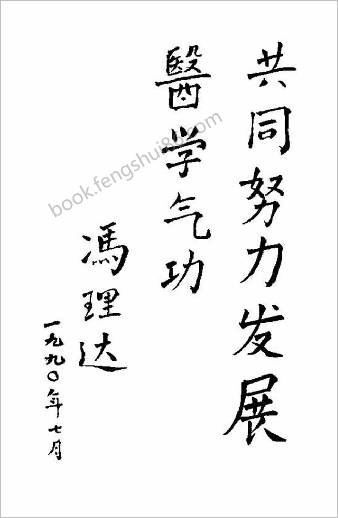 共同努力发展
醫学气功
冯理达
一九九〇年七月
book.fengshui86.com